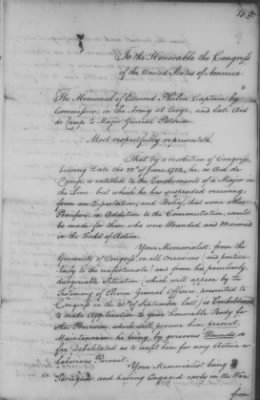 To the Honorable the Congress
of the United States of America
The Memorial of Edward Phelon Captain by
Commission, in the Army at large, and late Aid
de Camp to Major General Paterson
Most respectfully representeth
That by a resolution of Congress
bearing Date the 22d of June 1782, he, as Aid de
Camp is entitled to the Emoluments of a Major in
the Line but which he has suspended receiving
from an Expectation, and Belief, that some other
Provision, in Addition to the Commutation, would
be made for those who were Wounded and Maimed
in the Field of Action.
Your Memorialist from the
Generosity of Congress, on all Occasions (and particu-
larly to the unfortunate) and from his, peculiarly,
disagreeable Situation (which will appear by the
Testimony of Eleven General Officers, presented to
Congress on the of September last) is Emboldened
to make Application to your Honorable Body for
other Provision which will procure him present
Maintenance he being by grievous Wounds so
far debilitated as to unfit him for any Active or
Laborious Pursuit.
Your Memorialist being a
and having Engaged early in the War
from